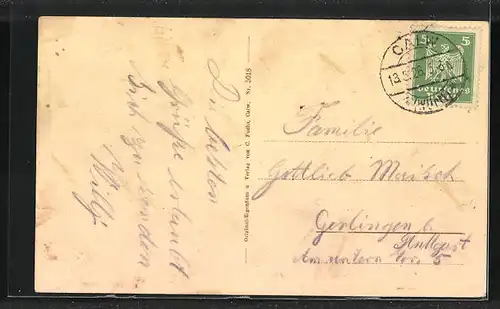 Die besten
Grüße erlaubt
sich zu senden
Willy
Original-Eigentum u. Verlag von C. Fuchs, Calw. Nr. 5018
CALW
5
Deutsches
Familie
Gottlieb Maisch
Gerlingen b.
Stuttgart
Am untern Tor 5